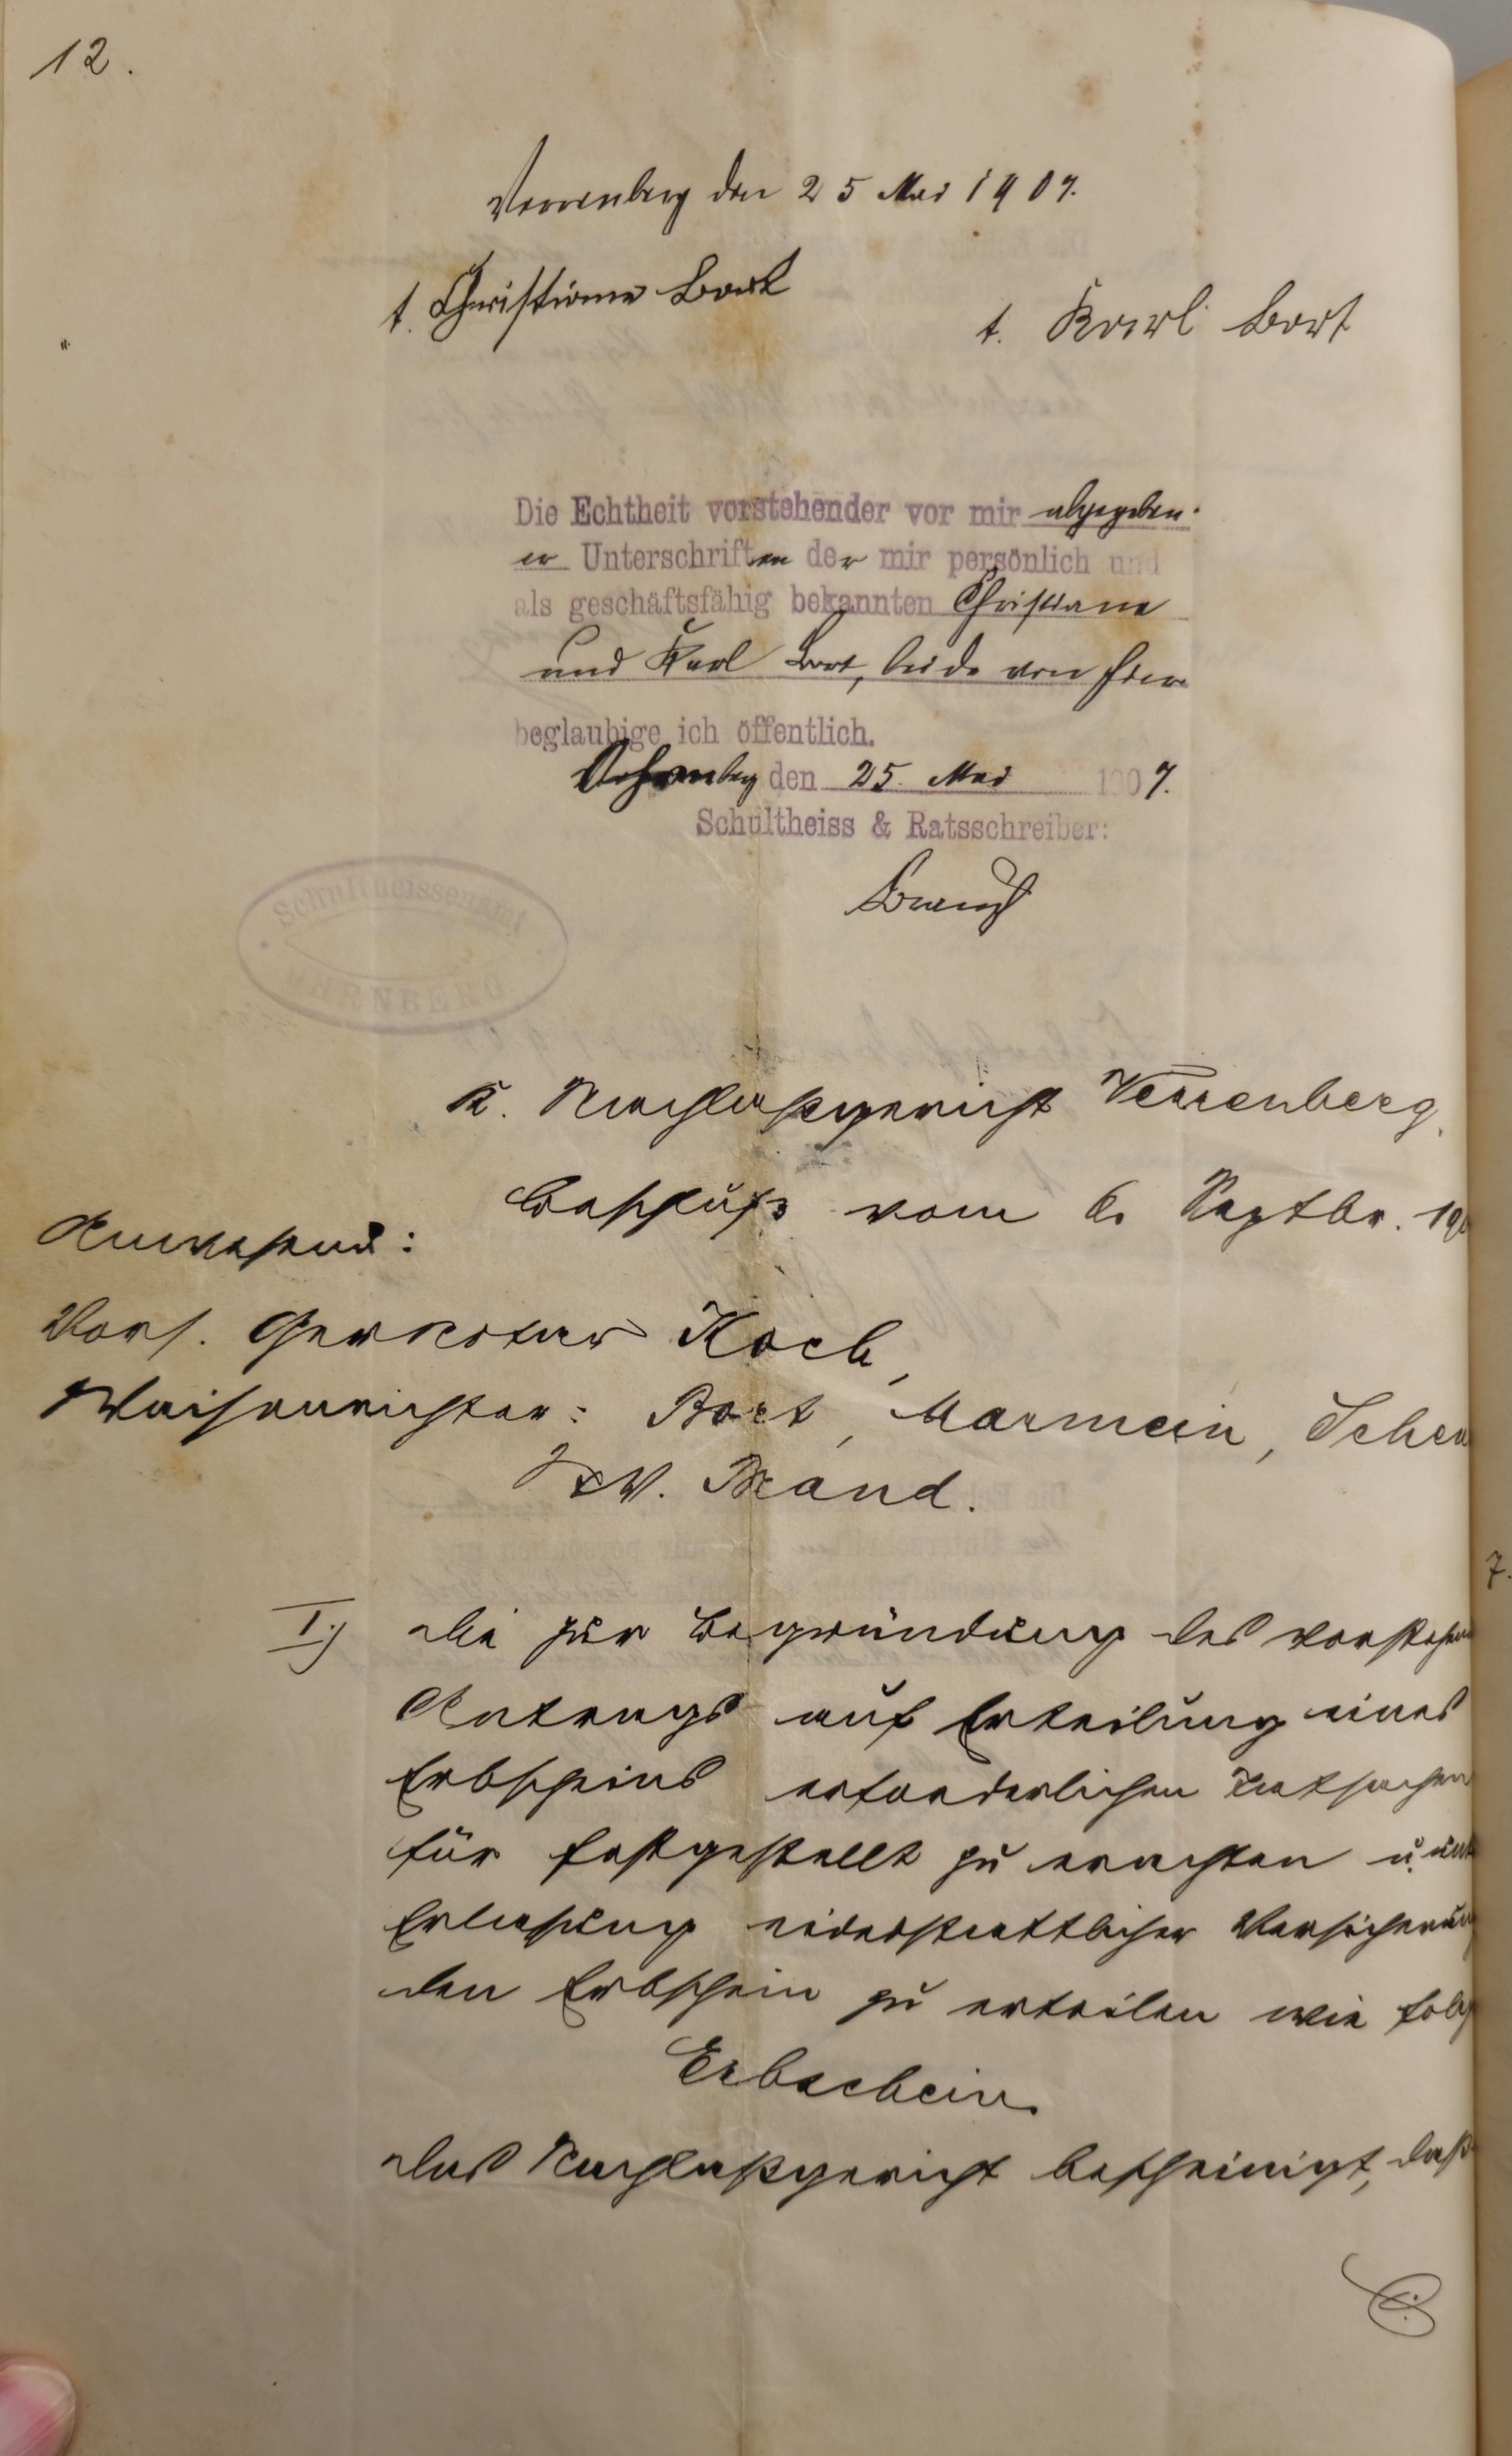 12.
Verrenberg den 25 Mai 1907.
t. Christiane Bort
t. Karl Bort
Die Echtheit vorstehender vor mir abgegeben-
er Unterschriften der mir persönlich und
als geschäftsfähig bekannten Christiane
und Karl Bort, beide von hier
beglaubige ich öffentlich.
den 25. Mai 1907.
Schultheiss & Ratsschreiber:
Brand
Schultheissenamt
K. Nachlaßgericht Verrenberg.
Beschluß vom 6. Septbr. 19
Anwesend:
Vors. Koch,
Waisenrichter: Bort, Marmein,
Brand.
I.) Die zur Begründung des
Antrags auf Erteilung eines
Erbscheins erforderlichen Tatsachen
für festgestellt zu erachten u. unt
Erlassung eidesstattlicher Versicherung
den Erbschein zu erteilen wie folg
Erbschein.
Das Nachlaßgericht bescheinigt, daß
7.